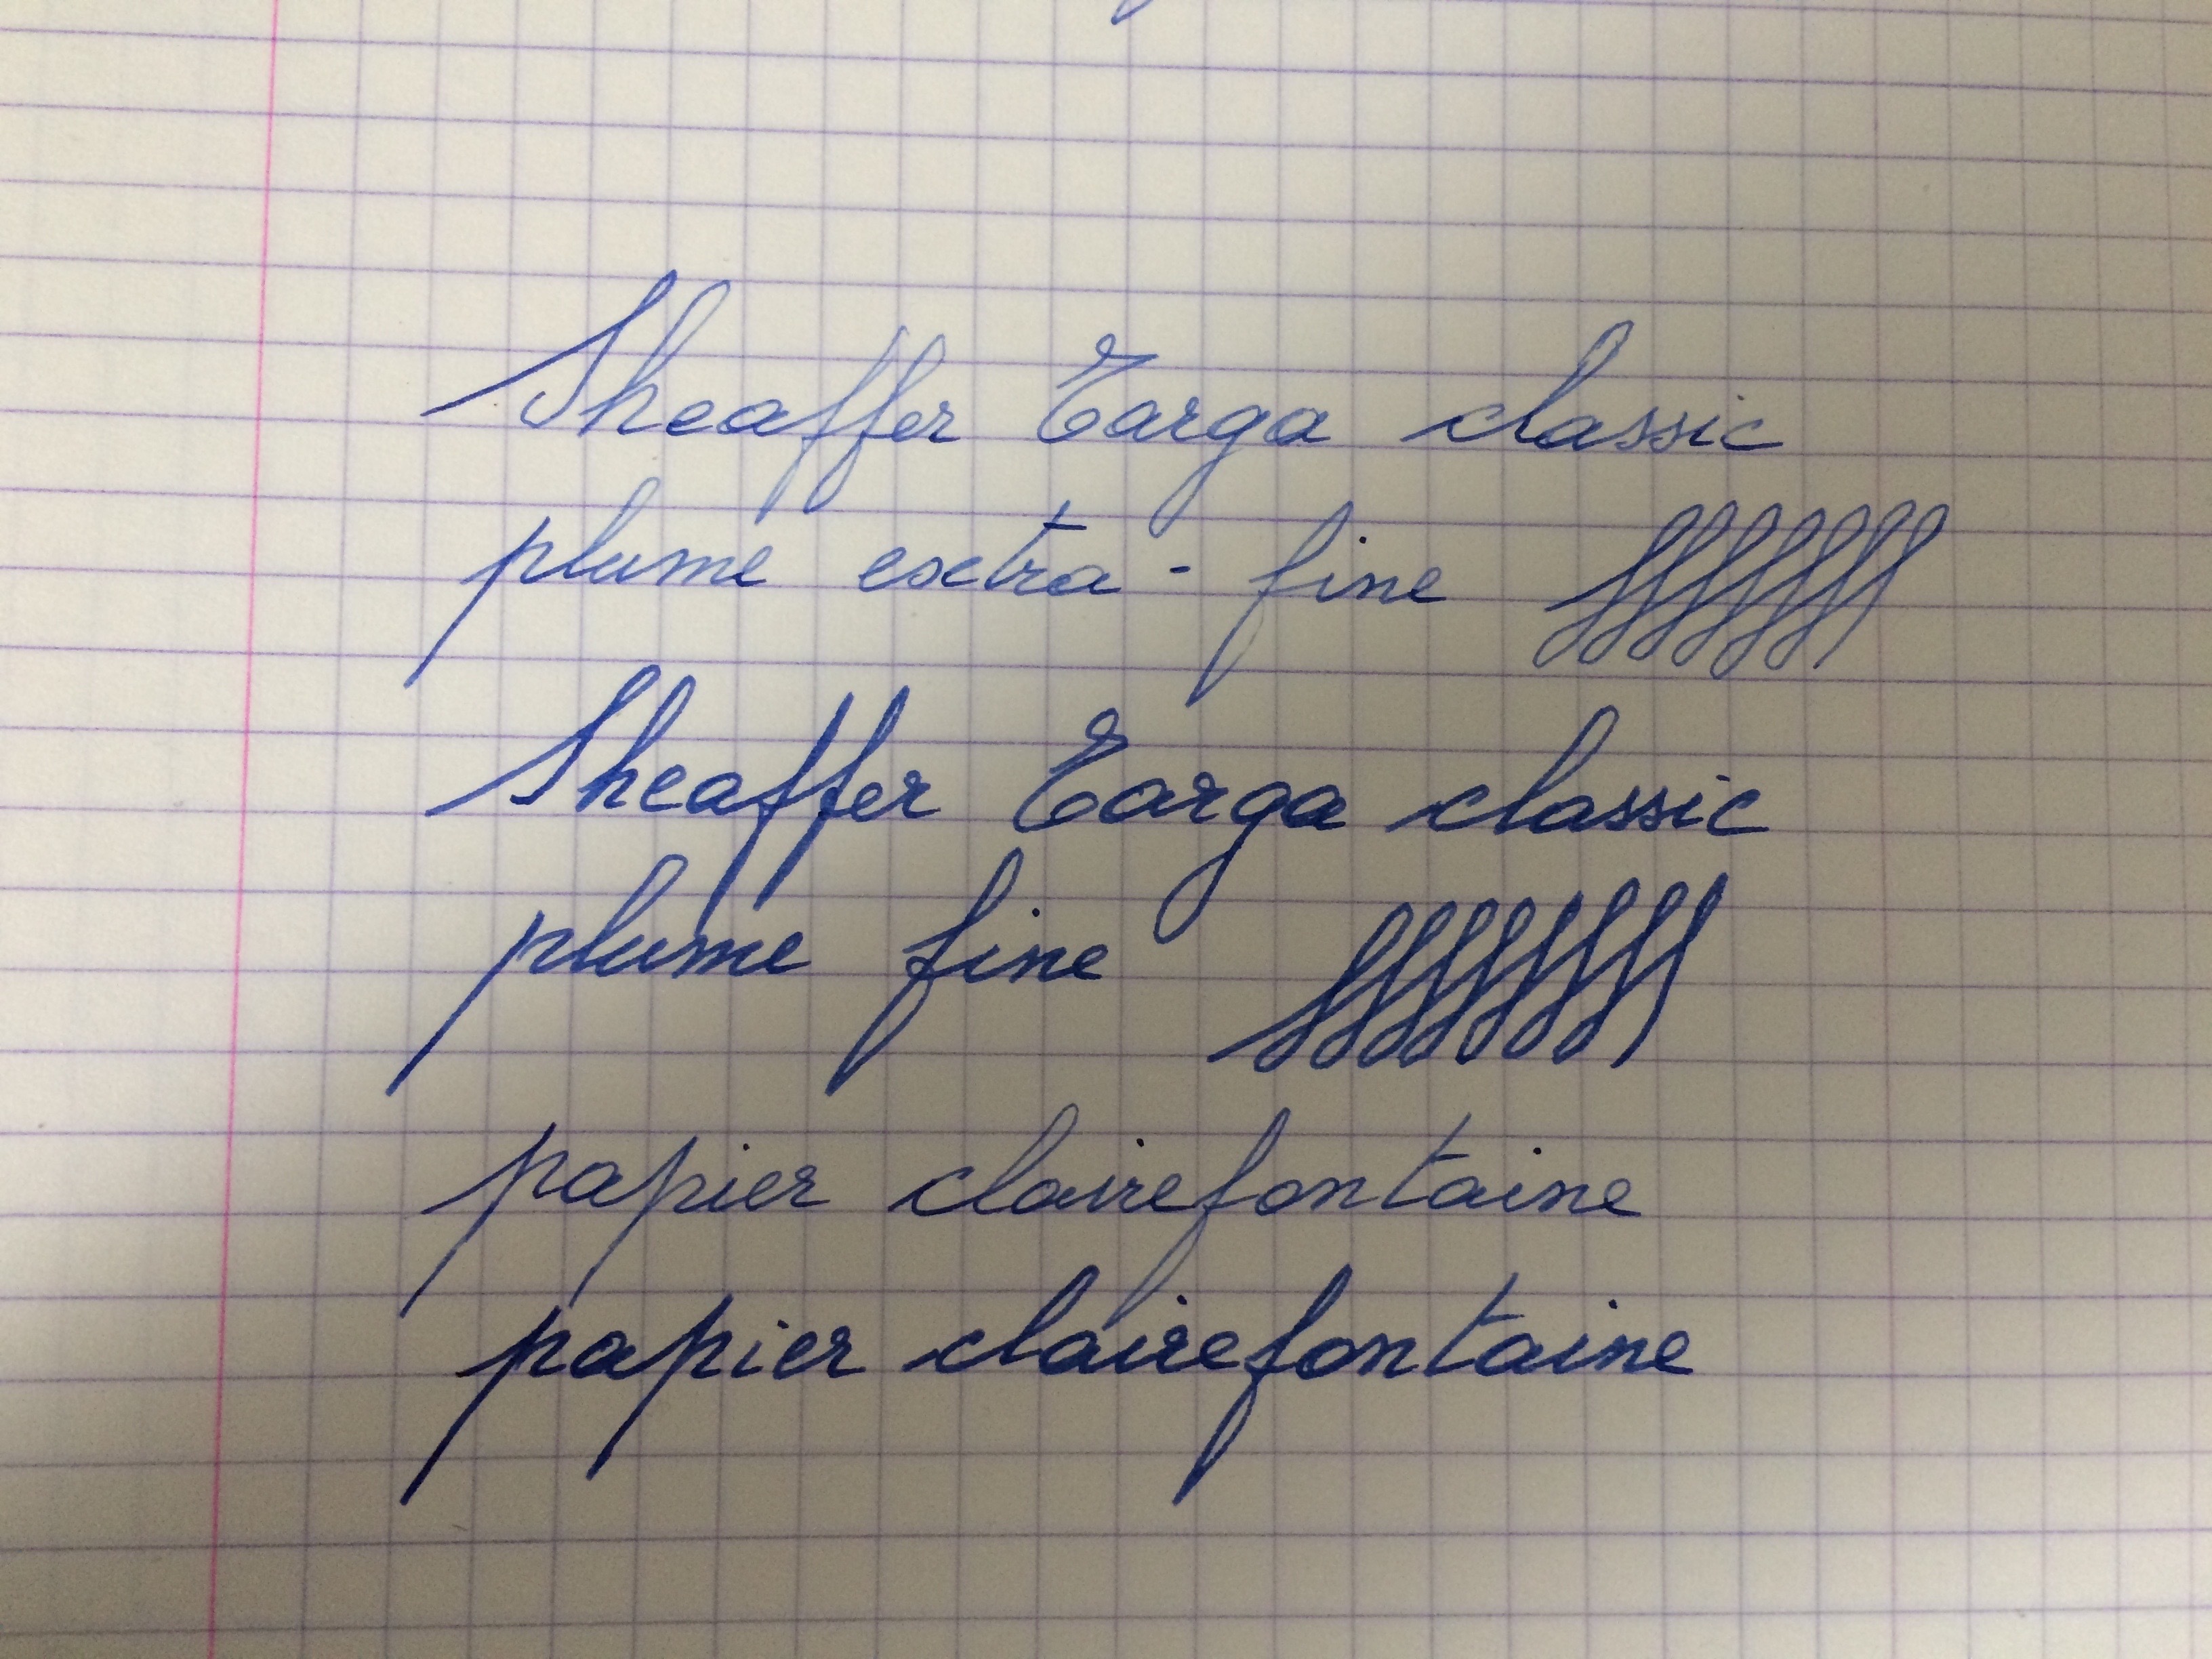 Sheaffer Targa classic
plume extra-fine
Sheaffer Targa classic
plume fine
papier clairefontaine
papier clairefontaine